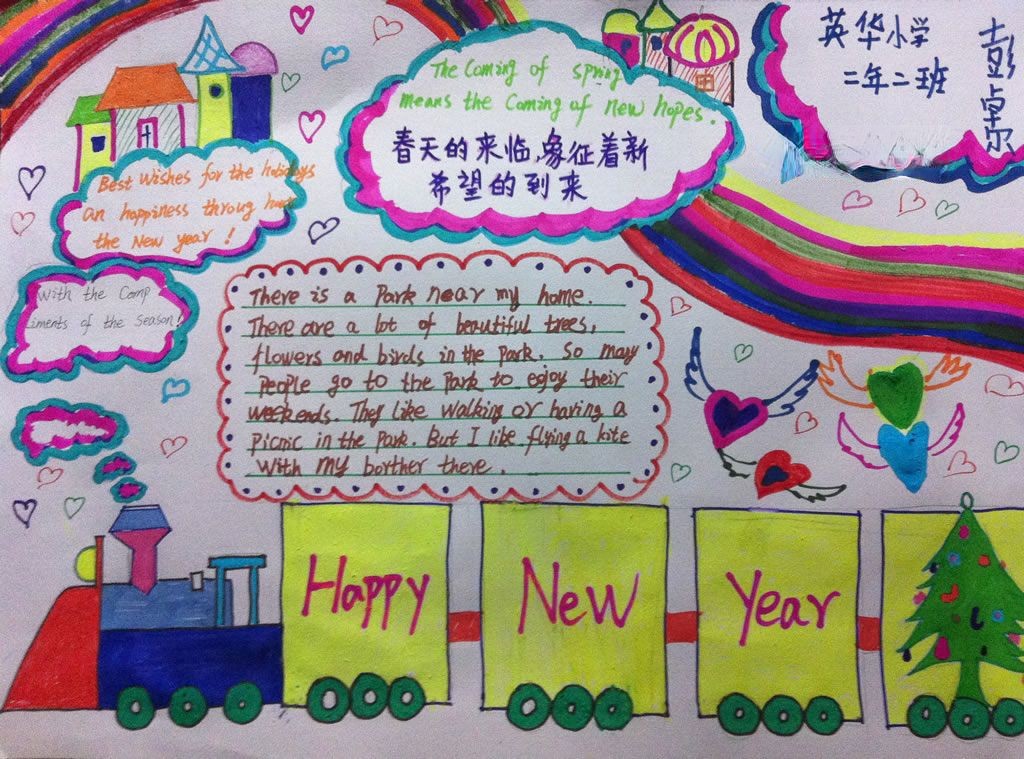 The Coming of spring
means the Coming of new hopes.
春天的来临,象征着新
希望的到来
英华小学
二年二班
彭卓尔
Best Wishes for the holidays
an happiness throug hout
the New year !
With the Comp
liments of the Season!
There is a Park near my home.
There are a lot of beautiful trees,
flowers and birds in the park. So many
people go to the Park to enjoy their
weekends. They like walking or having a
Picnic in the Park. But I like flying a kite
with my borther there.
Happy New Year